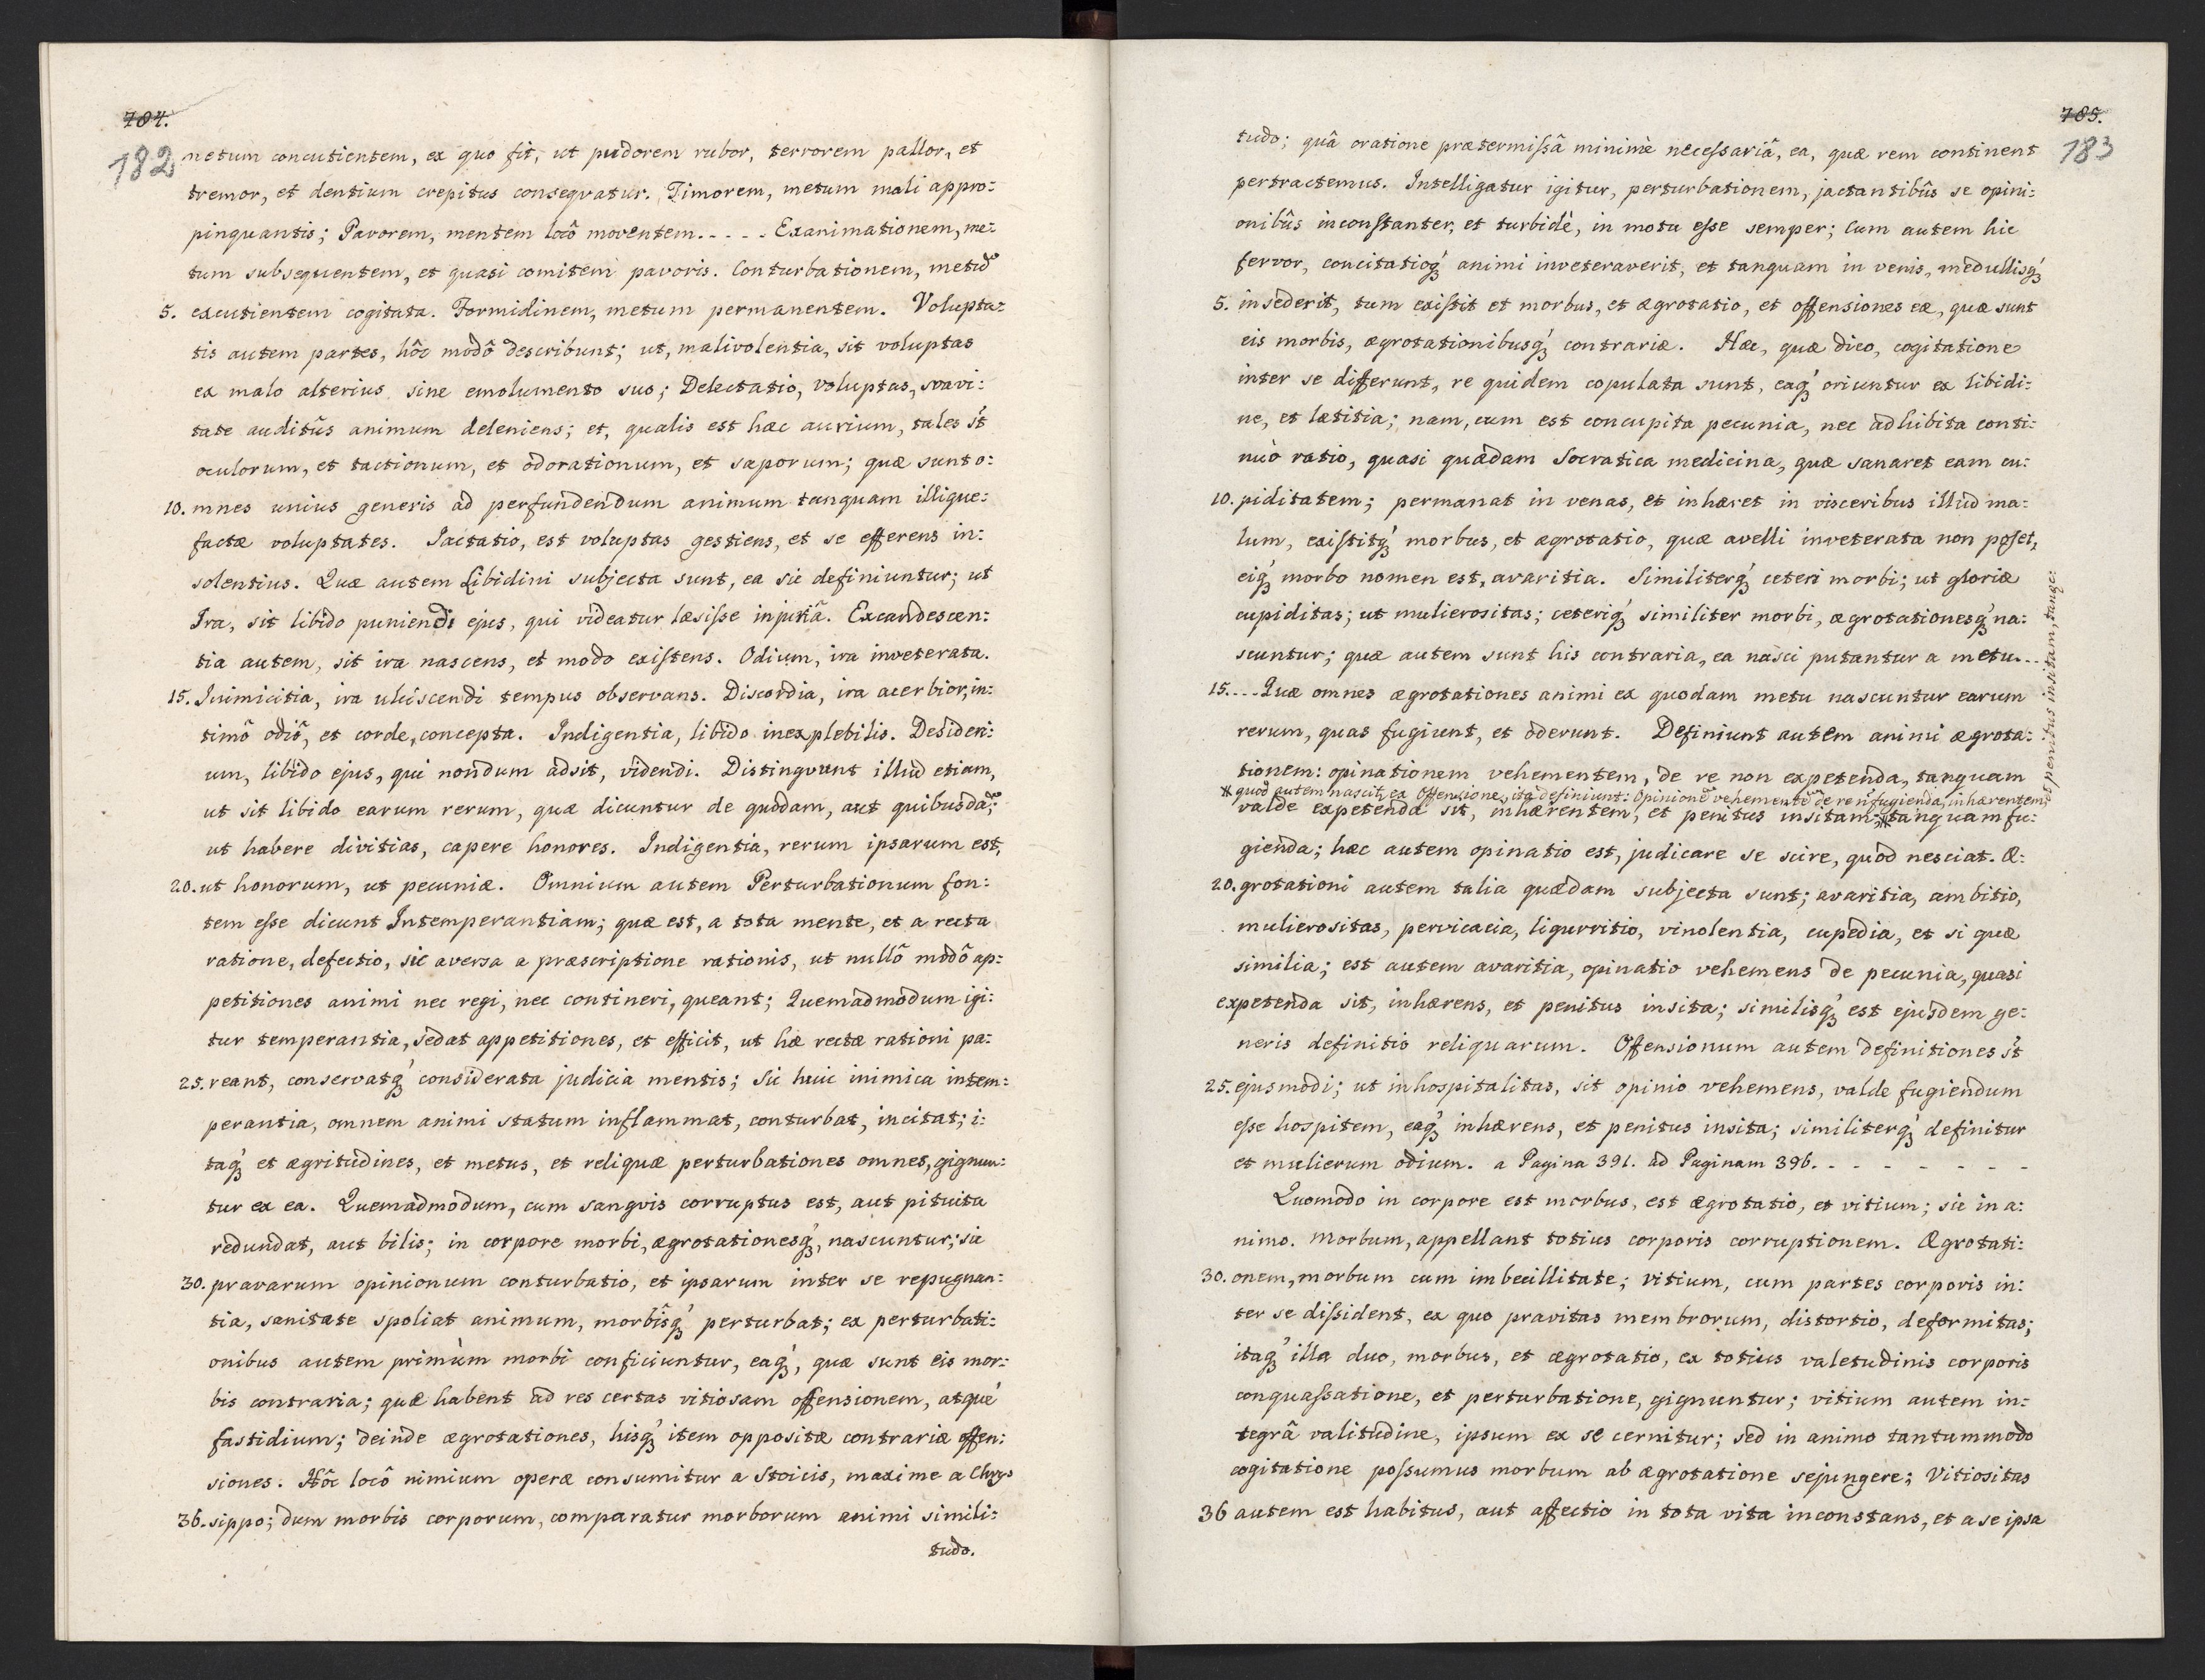 784.
182
netum concutientem, ex quo fit, ut pudorem rubor, terrorem pallor, et
tremor, et dentium crepitus conseqvatur. Timorem, metum mali appro:
pinquantis; Pavorem, mentem locô moventem.---- Exanimationem, me:
tum subsequentem, et quasi comitem pavoris. Conturbationem, metũ
5. excutientem cogitata. Formidinem, metum permanentem. Volupta:
tis autem partes, hôc modô describunt; ut, malivolentia, sit voluptas
ex malo alterius sine emolumento suo; Delectatio, voluptas, svavi:
tate auditûs animum deleniens; et, qualis est hæc aurium, tales st̃
oculorum, et tactionum, et odorationum, et saporum; quæ sunt o:
10. mnes unius generis ad perfundendum animum tanquam illique:
factæ voluptates. Jactatio, est voluptas gestiens, et se efferens in:
solentius. Quæ autem Libidini subjecta sunt, ea sic definiuntur; ut
Ira, sit libido puniendi ejus, qui videatur læsiſse injuriâ. Excandescen:
tia autem, sit ira nascens, et modo exiſtens. Odium, ira inveterata.
15. Inimicitia, ira ulciscendi tempus observans. Discordia, ira acerbior, in:
timô odiô, et corde, concepta. Indigentia, libido inexplebilis. Desideri:
um, libido ejus, qui nondum adsit, videndi. Distingvunt illud etiam,
ut sit libido earum rerum, quæ dicuntur de quodam, aut quibusdã;
ut habere divitias, capere honores. Indigentia, rerum ipsarum est,
20. ut honorum, ut pecuniæ. Omnium autem Perturbationum fon:
tem eſse dicunt Intemperantiam; quæ est, a tota mente, et a recta
ratione, defectio, sic aversa a præscriptione rationis, ut nullô modô ap:
petitiones animi nec regi, nec contineri, queant; Quemadmodum igi:
tur temperantia, sedat appetitiones, et efficit, ut hæ rectæ rationi pa:
25. reant, conservatq́ considerata judicia mentis; Sic huic inimica intem:
perantia, omnem animi statum inflammat, conturbat, incitat; i:
taq́ et ægritudines, et metus, et reliquæ perturbationes omnes, gignun:
tur ex ea. Quemadmodum, cum sangvis corruptus est, aut pituita
redundat, aut bilis; in corpore morbi, ægrotationesq́, nascuntur; sic
30. pravarum opinionum conturbatio, et ipsarum inter se repugnan:
tia, sanitate spoliat animum, morbîsq́ perturbat; ex perturbati:
onibus autem primùm morbi conficiuntur, eaq́, quæ sunt eis mor:
bis contraria; quæ habent ad res certas vitiosam offensionem, atque
fastidium; deinde ægrotationes, hisq́ item oppositæ contrariæ offen:
siones. Hôc locô nimium operæ consumitur a Stoicis, maxime a Chrys
36. sippo; dum morbis corporum, comparatur morborum animi simili:
tudo.
785.
183
tudo; quâ oratione prætermiſsâ minimè neceſsariâ, ea, quæ rem continent
pertractemus. Intelligatur igitur, perturbationem, jactantibûs se opini:
onibûs inconſtanter, et turbidè, in motu eſse semper; Cum autem hic
fervor, concitatioq́ animi inveteraverit, et tanquam in venis, medullisq́
5. insederit, tum exiſtit et morbus, et ægrotatio, et offensiones eæ, quæ sunt
eis morbis, ægrotationibusq́ contrariæ. Hæc, quæ dico, cogitatione
inter se differunt, re quidem copulata sunt, eaq́ oriuntur ex libidi:
ne, et lætitia; nam, cum est concupita pecunia, nec adhibita conti:
nuò ratio, quasi quædam Socratica medicina, quæ sanaret eam cu:
10. piditatem; permanat in venas, et inhæret in visceribus illud ma:
lum, exiſtitq́ morbus, et ægrotatio, quæ avelli inveterata non poſset,
eiq́ morbo nomen est, avaritia. Similiterq́ ceteri morbi; ut gloriæ
cupiditas; ut mulierositas; ceteriq́ similiter morbi, ægrotationesq́ na:
scuntur; quæ autem sunt his contraria, ea nasci putantur a metu...
15.....Quæ omnes ægrotationes animi ex quodam metu nascuntur earum
rerum, quas fugiunt, et oderunt. Definiunt autem animi ægrota:
tionem: opinationem vehementem, de re non expetenda, tanquam
* quod autem nascit̃ ex Offensione, ita definiunt: Opinionẽ vehementẽ de re ñ fugienda, inhærentem
et penitus insitam, tanq:
valde expetenda sit, inhærentem, et penitus insitam;* tanquam fu:
gienda; hæc autem opinatio est, judicare se scire, quod nesciat. Æ:
20. grotationi autem talia quædam subjecta sunt; avaritia, ambitio,
mulierositas, pervicacia, ligurritio, vinolentia, cupedia, et si quæ
similia; est autem avaritia, opinatio vehemens de pecunia, quasi
expetenda sit, inhærens, et penitus insita; similisq́ est ejusdem ge:
neris definitio reliquarum. Offensionum autem definitiones st̃
25. ejusmodi; ut inhospitalitas, sit opinio vehemens, valde fugiendum
eſse hospitem, eaq́ inhærens, et penitus insita; similiterq́ definitur
et mulierum odium. a Pagina 391. ad Paginam 396. - - - - - - -
Quomodo in corpore est morbus, est ægrotatio, et vitium; sic in a:
nimo. Morbum, appellant totius corporis corruptionem. Ægrotati:
30. onem, morbum cum imbecillitate; vitium, cum partes corporis in:
ter se diſsident, ex quo pravitas membrorum, distortio, deformitas;
itaq́ illa duo, morbus, et ægrotatio, ex totius valetudinis corporis
conquaſsatione, et perturbatione, gignuntur; vitium autem in:
tegrâ valitudine, ipsum ex se cernitur; sed in animo tantummodo
cogitatione poſsumus morbum ab ægrotatione sejungere; Vitiositas
36 autem est habitus, aut affectio in tota vita inconstans, et a se ipsa